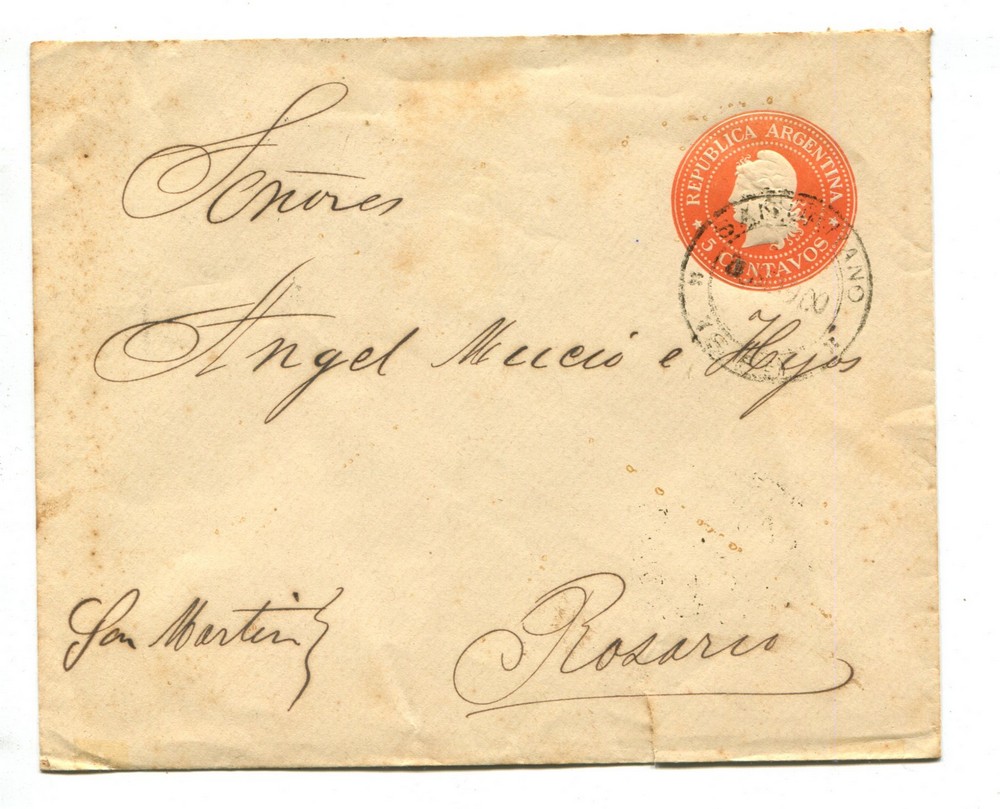 REPUBLICA ARGENTINA
5 CENTAVOS
Señores
Angel Mució e Hijos
San Martin
Rosario